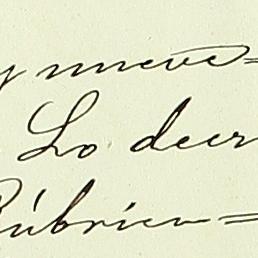 y nueve=
Lo decr
Rúbrica=